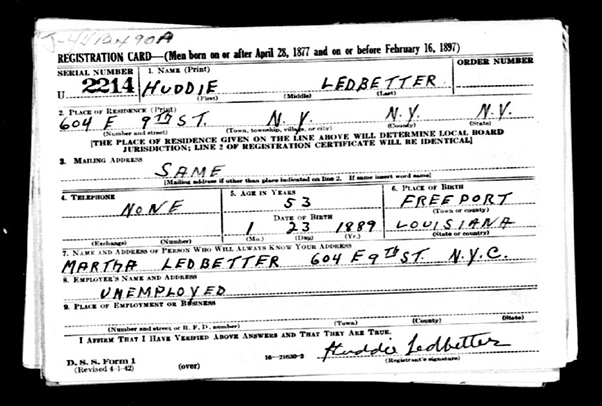 REGISTRATION CARD—(Men born on or after April 28, 1877 and on or before February 16, 1897)
SERIAL NUMBER 1. NAME (Print) ORDER NUMBER
U 2214 HUDDIE LEDBETTER
(First) (Middle) (Last)
2. PLACE OF RESIDENCE (Print)
604 E 9TH ST. N.Y. N.Y. N.Y.
(Number and street) (Town, township, village, or city) (County) (State)
[THE PLACE OF RESIDENCE GIVEN ON THE LINE ABOVE WILL DETERMINE LOCAL BOARD
JURISDICTION; LINE 2 OF REGISTRATION CERTIFICATE WILL BE IDENTICAL]
3. MAILING ADDRESS
SAME
[Mailing address if other than place indicated on line 2. If same insert word same]
4. TELEPHONE 5. AGE IN YEARS 6. PLACE OF BIRTH
NONE 53 FREEPORT
(Town or county)
DATE OF BIRTH
1 23 1889 LOUISIANA
(Exchange) (Number) (Mo.) (Day) (Yr.) (State or country)
7. NAME AND ADDRESS OF PERSON WHO WILL ALWAYS KNOW YOUR ADDRESS
MARTHA LEDBETTER 604 E 9TH ST. N.Y.C.
8. EMPLOYER'S NAME AND ADDRESS
UNEMPLOYED
9. PLACE OF EMPLOYMENT OR BUSINESS
(Number and street or R. F. D. number) (Town) (County) (State)
I AFFIRM THAT I HAVE VERIFIED ABOVE ANSWERS AND THAT THEY ARE TRUE.
Huddie Ledbetter
D. S. S. Form 1 16—21630-2 (Registrant's signature)
(Revised 4-1-42) (over)